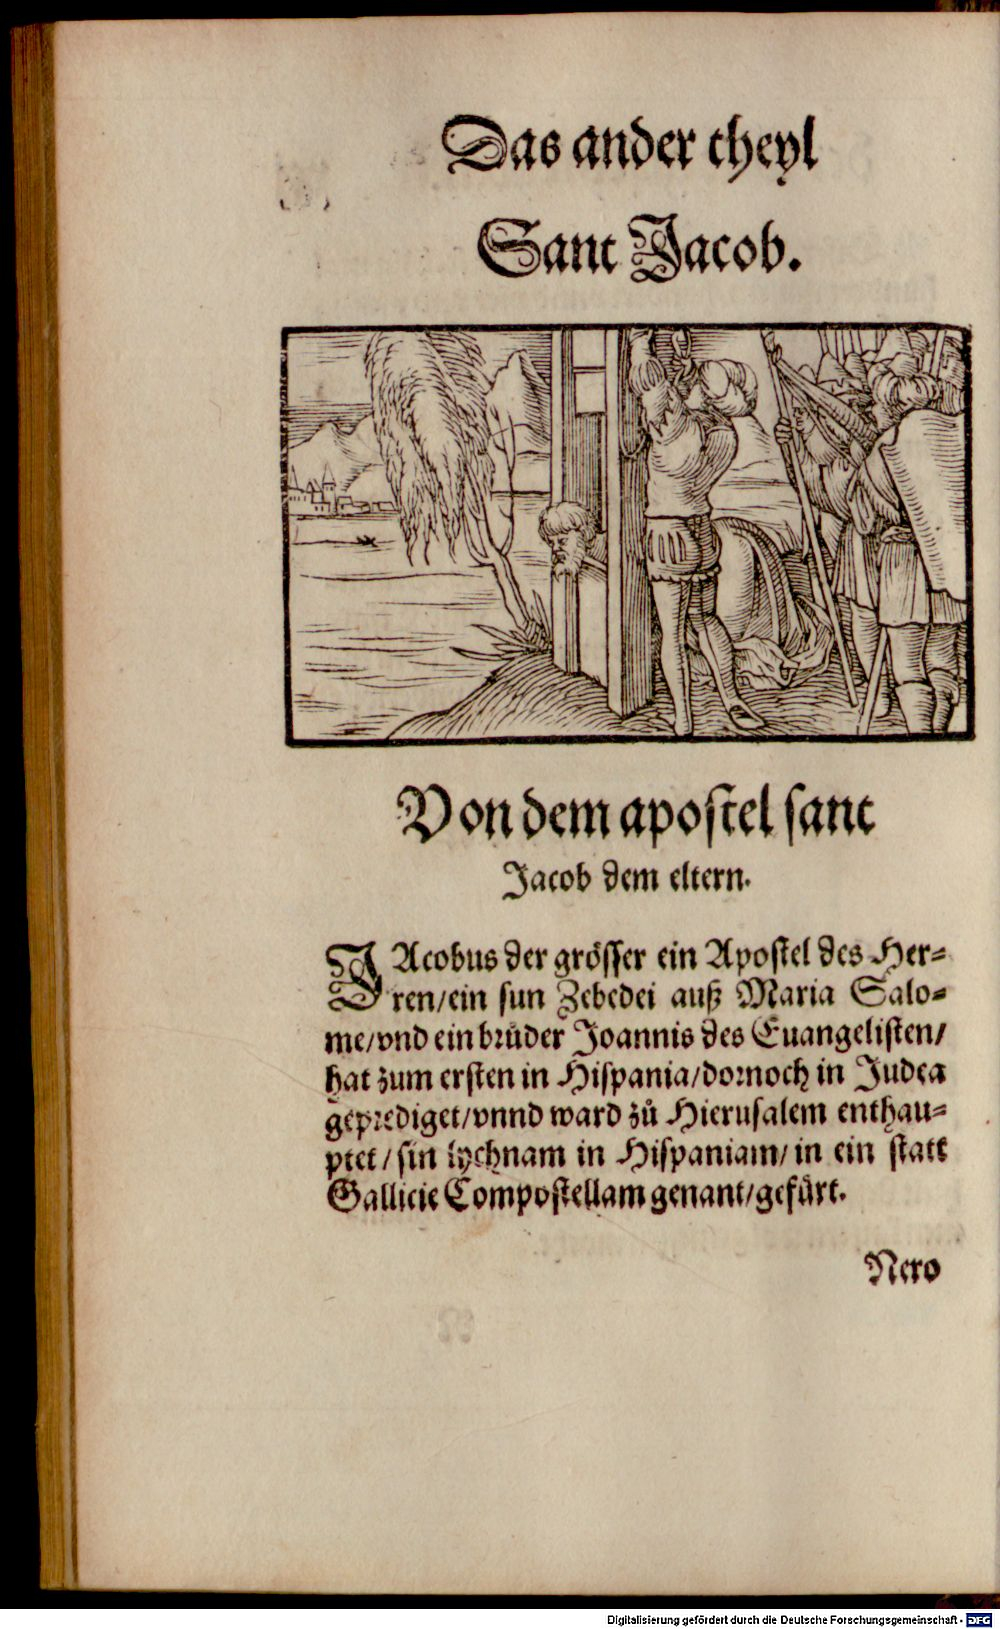 Das ander theyl
Sant Jacob.
Von dem apostel sant
Jacob dem eltern.
JAcobus der grösser ein Apostel des Her-
ren/ein sun Zebedei auß Maria Salo-
me/vnd ein brůder Joannis des Euangelisten/
hat zum ersten in Hispania/dornoch in Judea
geprediget/vnnd ward zů Hierusalem enthau-
ptet/sin lychnam in Hispaniam/in ein statt
Gallicie Compostellam genant/gefürt.
Nero
Digitalisierung gefördert durch die Deutsche Forschungsgemeinschaft - DFG